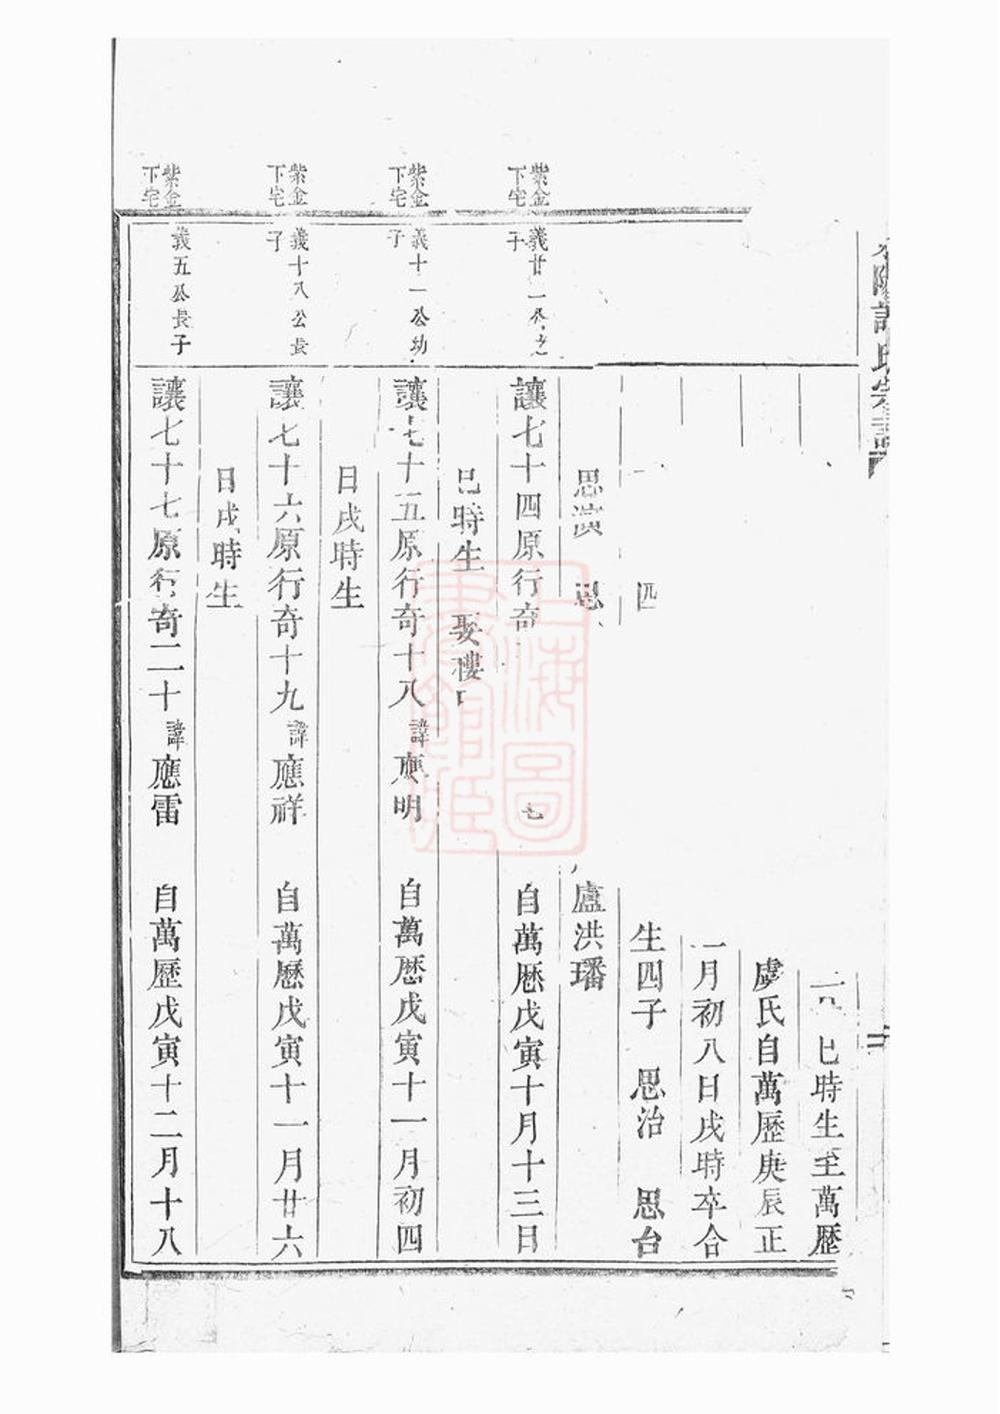 氏宗譜
巳時生至萬歷
虞氏自萬歷庚辰正
一月初八日戌時卒合
四
生四子　思治　思台
思演　思
盧洪璠
紫金下宅
義廿一公之子
讓七十四原行奇
自萬歷戊寅十月十三日
巳時生　娶樓
紫金下宅
義十一公幼子
讓七十五原行奇十八諱應明　自萬歷戊寅十一月初四
日戌時生
紫金下宅
義十八公長子
讓七十六原行奇十九諱應祥　自萬歷戊寅十一月廿六
日戌時生
紫金下宅
義五公長子
讓七十七原行奇二十諱應雷　自萬歷戊寅十二月十八
上海圖書館藏